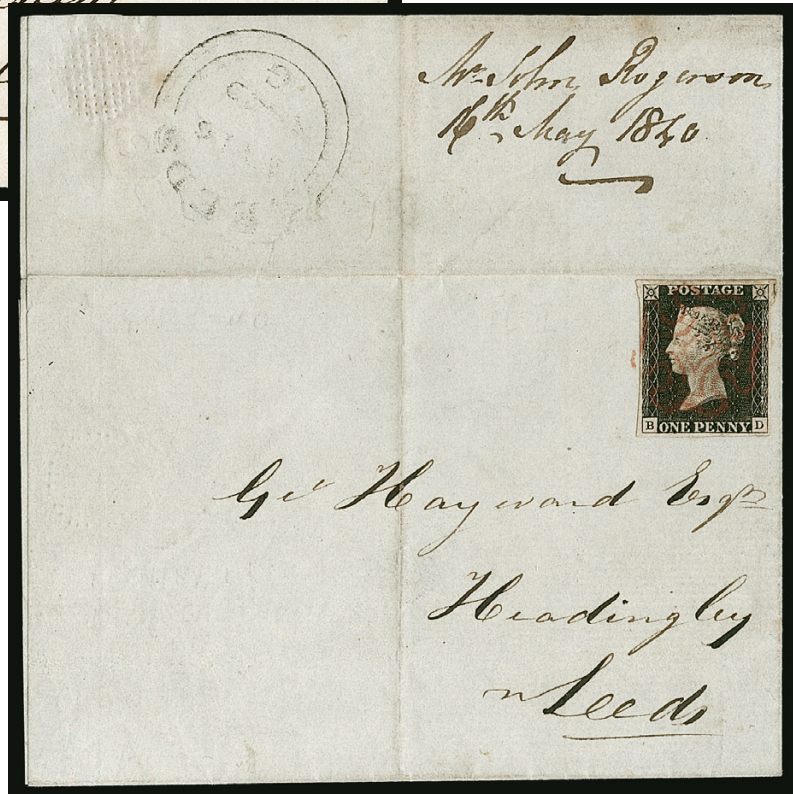 Mr John Rogerson
16th May 1840
LEEDS
POSTAGE
B ONE PENNY D
Geo Hayward Esqre
Headingley
nr Leeds